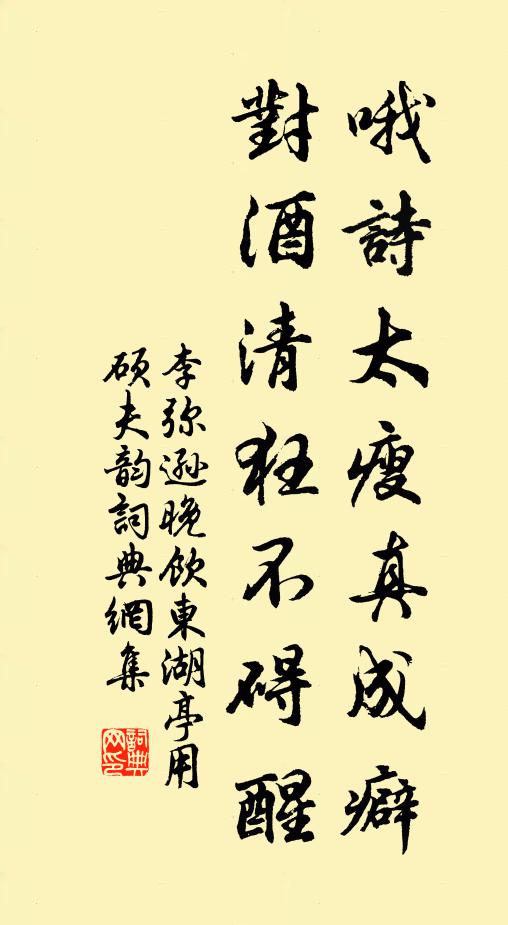 哦詩太瘦真成癖
對酒清狂不碍醒
李弥遜晚飲東湖亭用
碩夫韵詞典網集
詞典網印